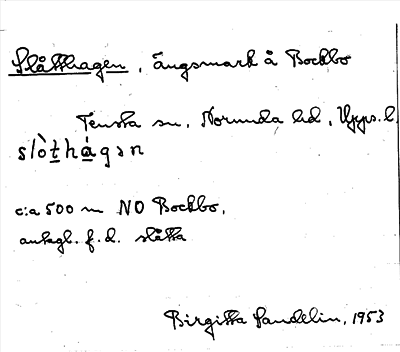 Slåtthagen, ängsmark å Bockbo
Tensta sn, Norunda hd, Upps. l.
slòthágən
c:a 500 m NO Bockbo,
antagl. f.d. slåtta
Birgitta Sandelin, 1953